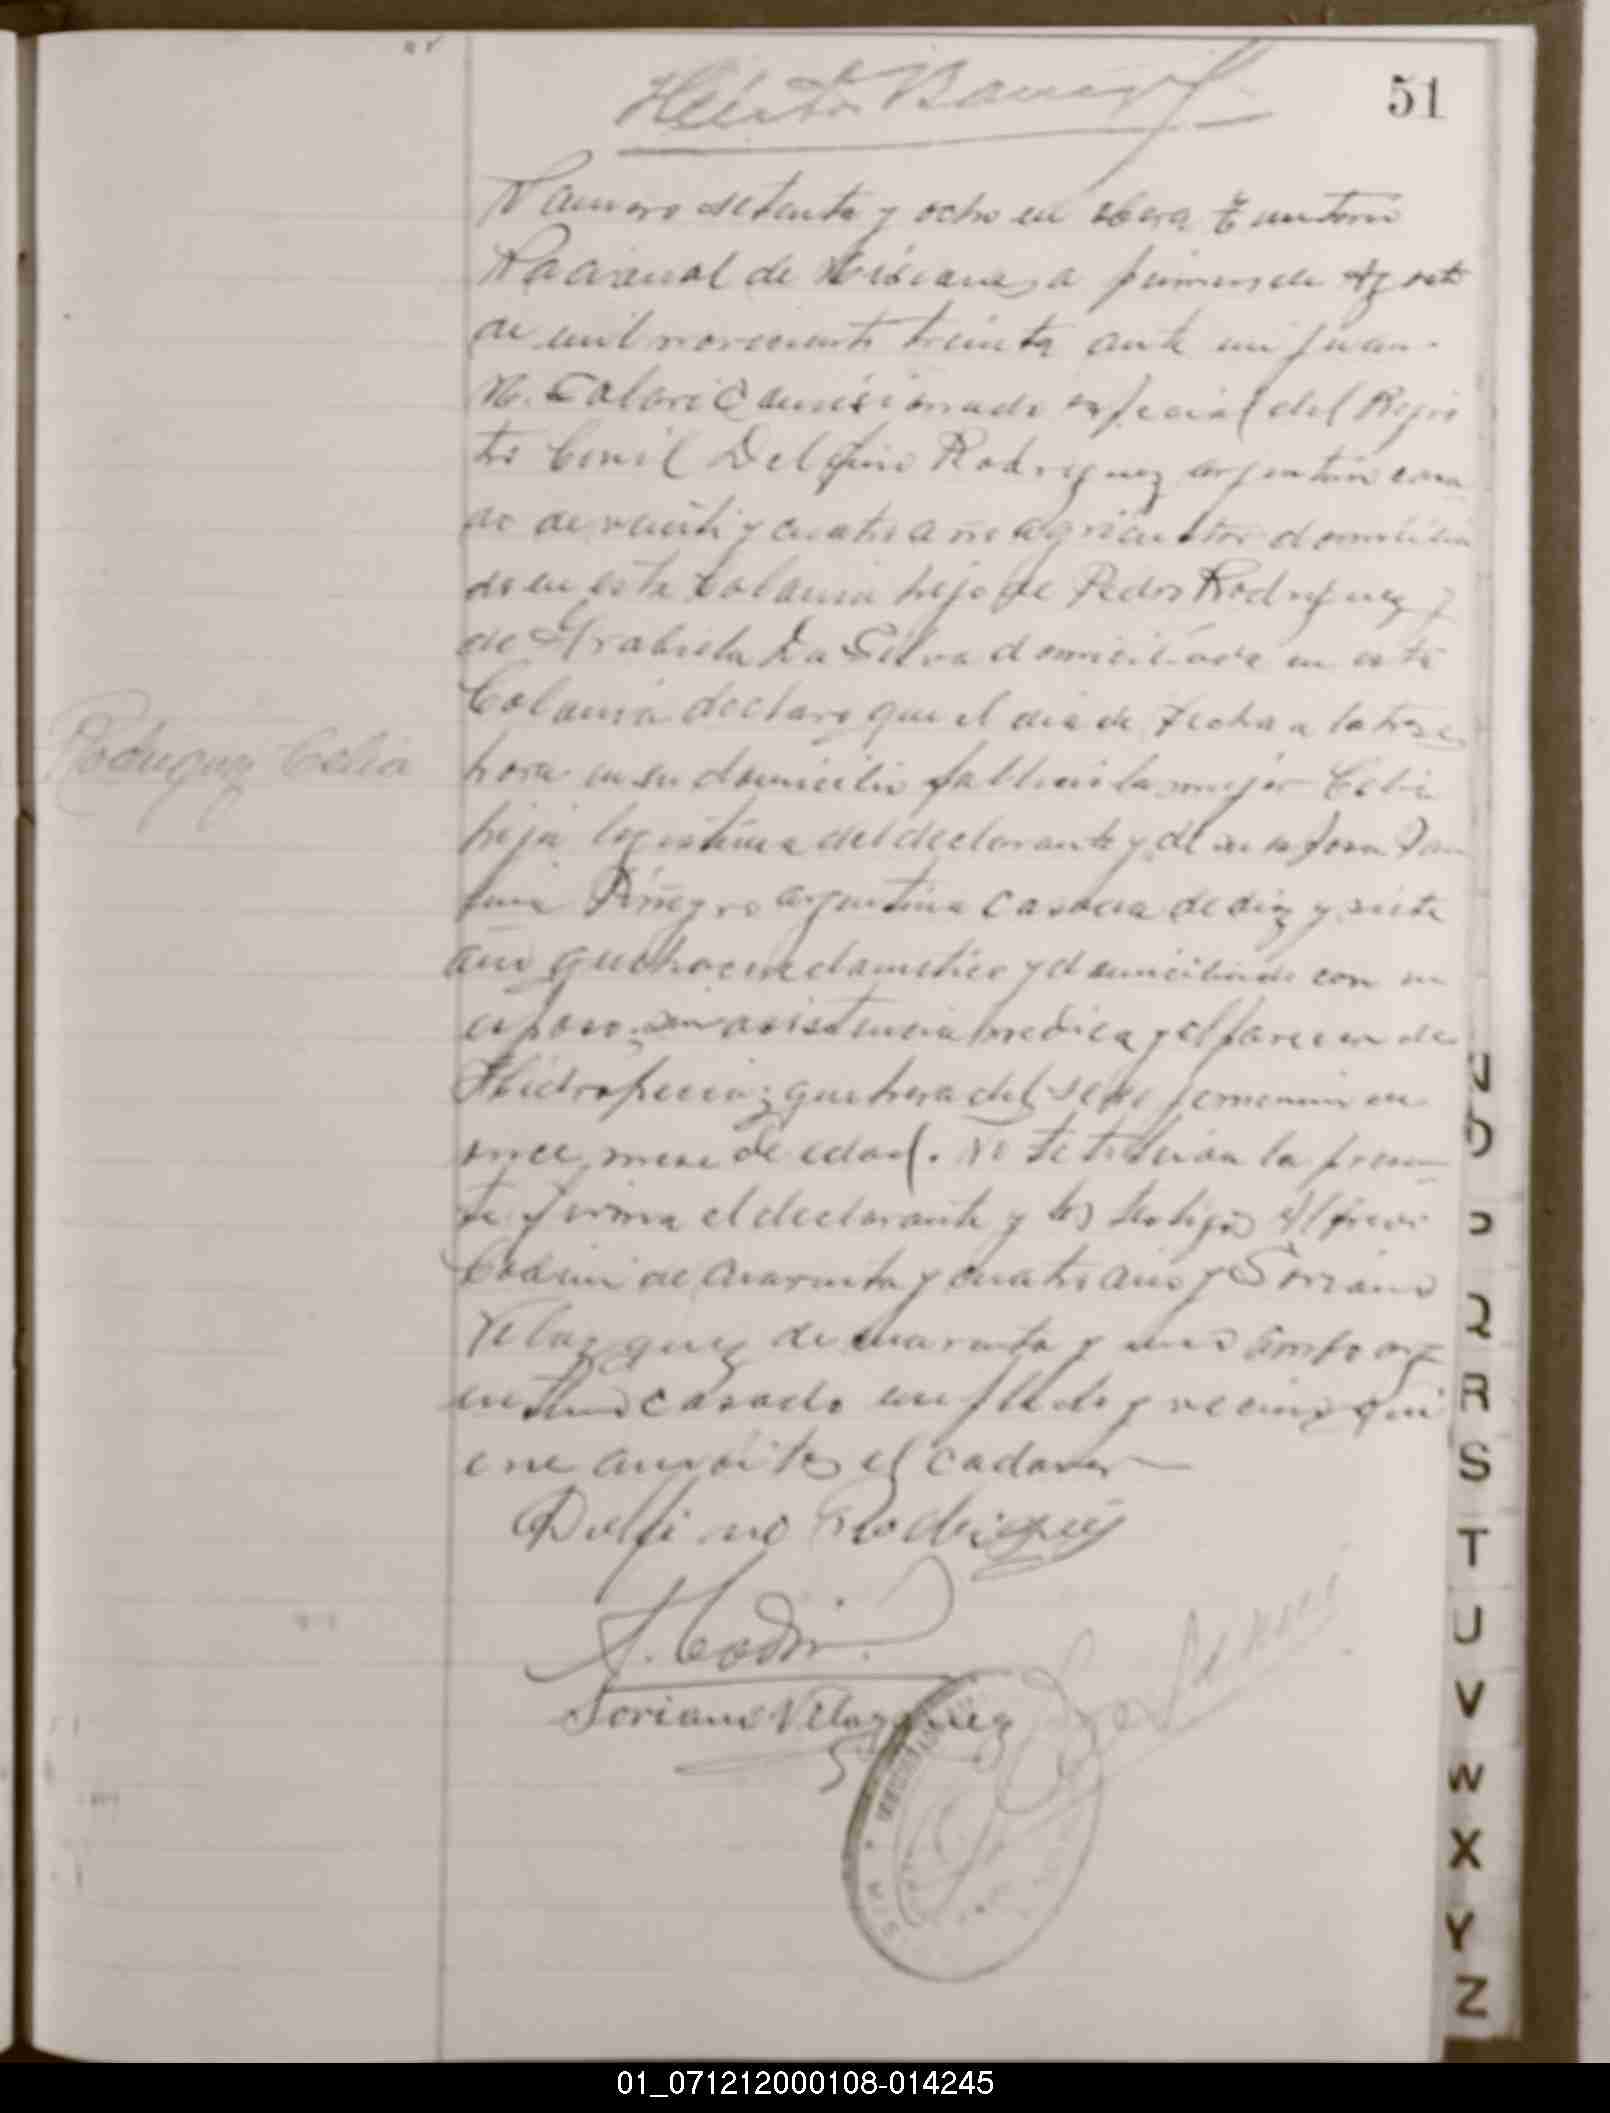 51
Numero setenta y ocho en Obera Territorio
Nacional de Misiones a primero de Agosto
de mil novecientos treinta ante mi Juan
Comisionado especial del Regis
tro Civil Delfino Rodriguez argentino casa
do de veinti y cuatro año agricultor domicilia
do en esta Colonia hijo de Pedro Rodriguez y
de Grabiela Da Silva domiciliada en esta
Colonia declaro que el dia de fecha a la trese
Rodriguez Celia
hora en su domicilio fallecio la mujer Celia
hija legitima del declarante y de su esposa
Piñeyro argentina casada de diez y siete
año quehacere domestico y domiciliada con su
esposo; sin asistencia medica y al parecer de
Hidropecia; que hera del sexo femenino en
once mese de edad. la presen
te firma el declarante y los testigos Alfredo
Codini de cuarenta y cuatro año y Soriano
Velazquez de cuarenta y uno ambo arg
entino casado empleado y vecino qui
ene an visto el cadaver
Delfino Rodriguez
A. Codin
Soriano Velazquez
Q
R
S
T
U
V
W
X
Y
Z
01_071212000108-014245